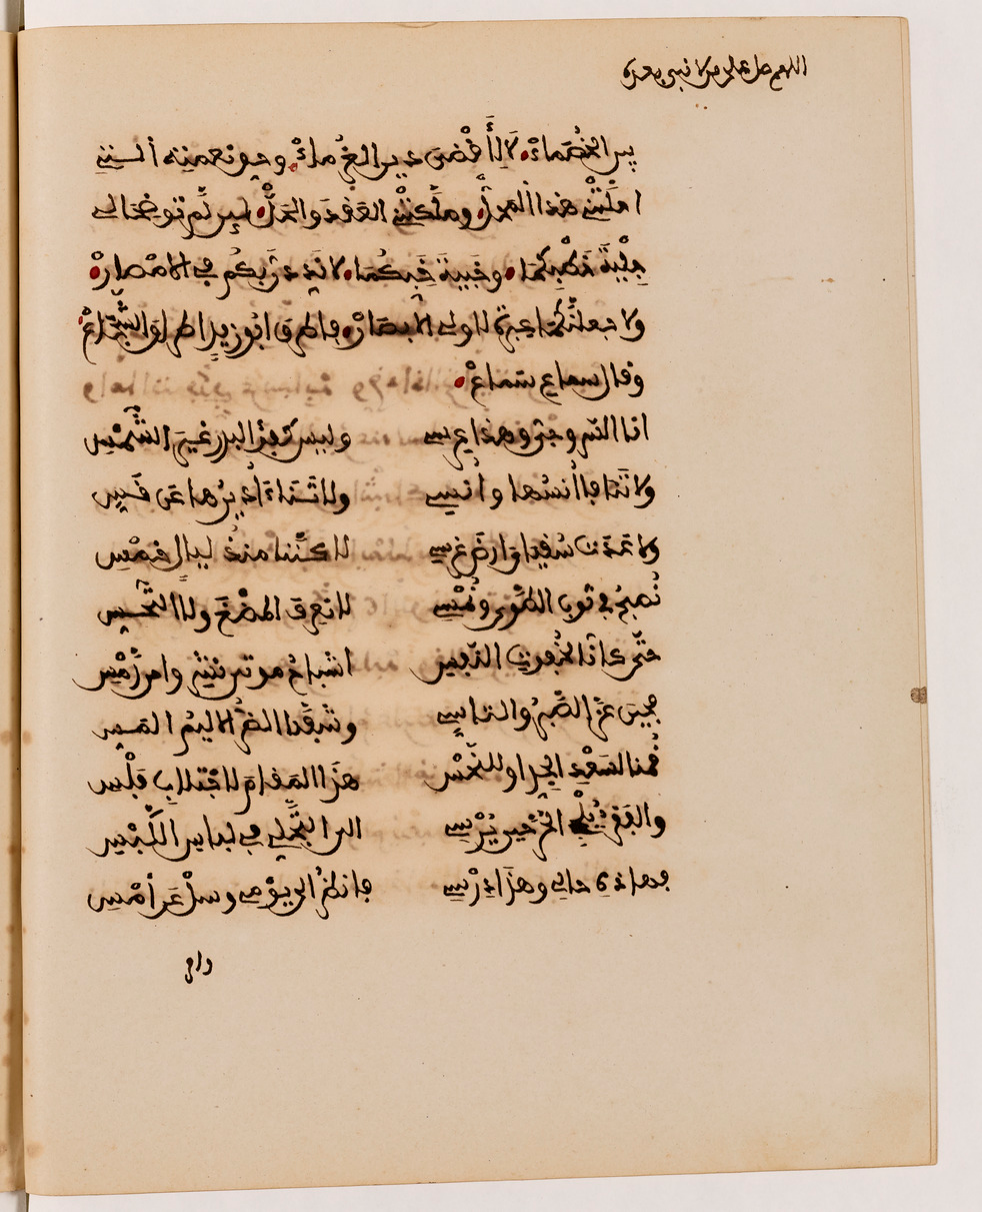 اللهم صل على من لا نبي بعده
بين الخصماء لا لأقضي دين الغرماء وحق نعمته التي
احلتني هذا المحل وملكتني العقد والحل لين لم توضحا لي
جلية خطبكما وخبية خبكما لانددن بكم في الامصار
ولاجعلنكما عبرة لاولي الابصار فاطرق ابو زيد اطراق الشجاع
وقال سماع سماع
انا السروجي وهذي عرسي وليس كفؤ البدر غير الشمس
ولا تنافا أنسها وأنسي ولا تناءا ديرها عن قسي
ولا عدت سقياي ارض غرسي لاكننا منذ ليال خمس
نصبح في ثوب الطوى ونمسي لا نعرف المضغ ولا التحسي
حتى كأنا لخفوت النفس اشباح موتى من رمس
فحين عز الصبر والتاسي وشفنا الضر الاليم المس
قمنا لسعد الجد او للنحس هذا المقام لاجتلاب فلس
والفقر يلجي الحر حين يرسي الى التجلي في لباس اللبس
فهاذي حالي وهذا درسي فانظر الى يومي وسل عن أمس
وام